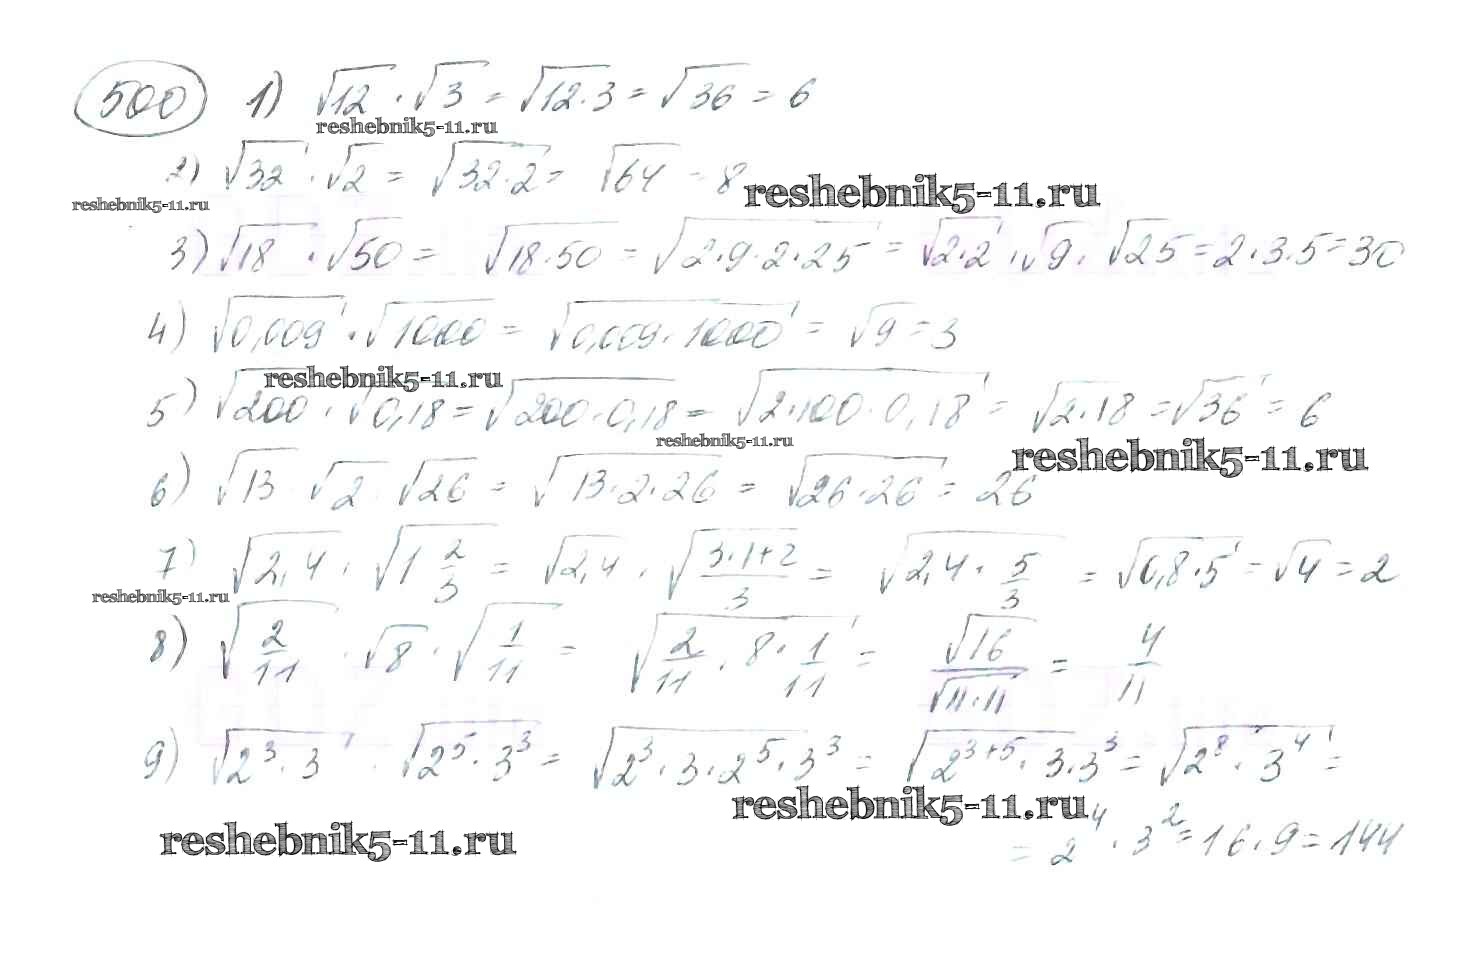 500 1) √12 · √3 = √12·3 = √36 = 6
reshebnik5-11.ru
2) √32 · √2 = √32·2 = √64 = 8
reshebnik5-11.ru
reshebnik5-11.ru
3) √18 · √50 = √18·50 = √2·9·2·25 = √2·2 · √9 · √25 = 2·3·5 = 30
4) √0,009 · √1000 = √0,009·1000 = √9 = 3
reshebnik5-11.ru
5) √200 · √0,18 = √200·0,18 = √2·100·0,18 = √2·18 = √36 = 6
reshebnik5-11.ru
reshebnik5-11.ru
6) √13 · √2 · √26 = √13·2·26 = √26·26 = 26
7) √2,4 · √1 2/3 = √2,4 · √(3·1+2)/3 = √2,4 · 5/3 = √0,8·5 = √4 = 2
reshebnik5-11.ru
8) √2/11 · √8 · √1/11 = √2/11 · 8 · 1/11 = √16/√11·11 = 4/11
9) √2³·3 · √2⁵·3³ = √2³·3·2⁵·3³ = √2³⁺⁵·3·3³ = √2⁸·3⁴ =
reshebnik5-11.ru
= 2⁴ · 3² = 16·9 = 144
reshebnik5-11.ru